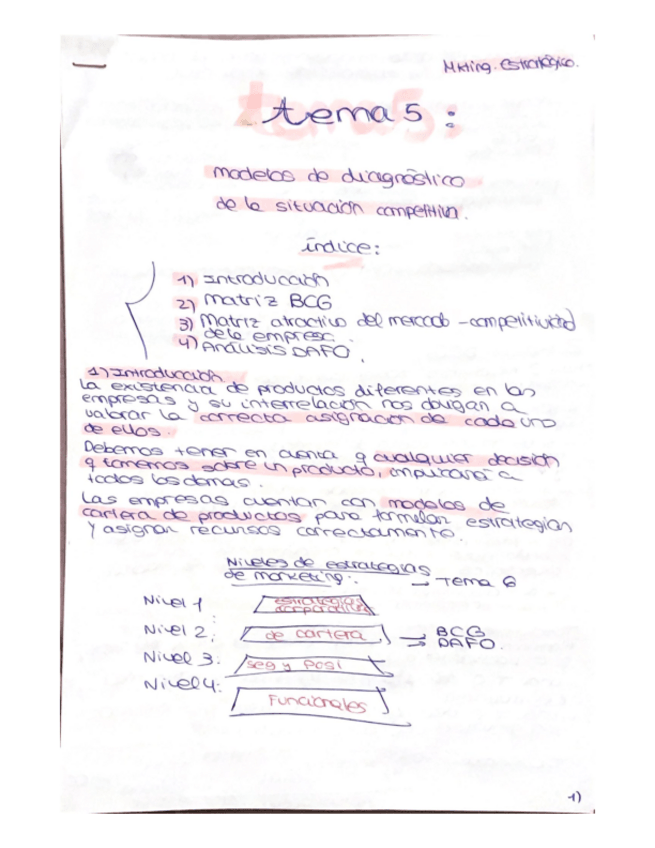 Mkting. estratégico.
tema 5 :
modelos de diagnóstico
de la situación competitiva.
índice:
1) Introducción
2) Matriz BCG
3) Matriz atractivo del mercado - competitividad
de la empresa.
4) Análisis DAFO.
1) Introducción.
La existencia de productos diferentes en las
empresas y su interrelación nos obligan a
valorar la correcta asignación de cada uno
de ellos.
Debemos tener en cuenta q cualquier decisión
q tomemos sobre un producto, impulsará a
todos los demas.
Las empresas cuentan con modelos de
cartera de productos para formular estrategias
y asignar recursos correctamente.
Niveles de estrategias
de marketing:. → Tema 6
Nivel 1 : estrategias corporativas
Nivel 2: de cartera → BCG
→ DAFO.
Nivel 3: seg y posi
Nivel 4: Funcionales
1)